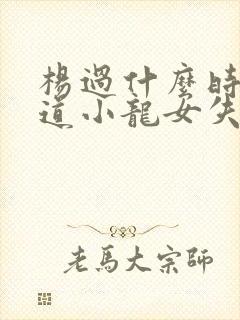 楊過什麼時
道小龍女失
老馬大宗師